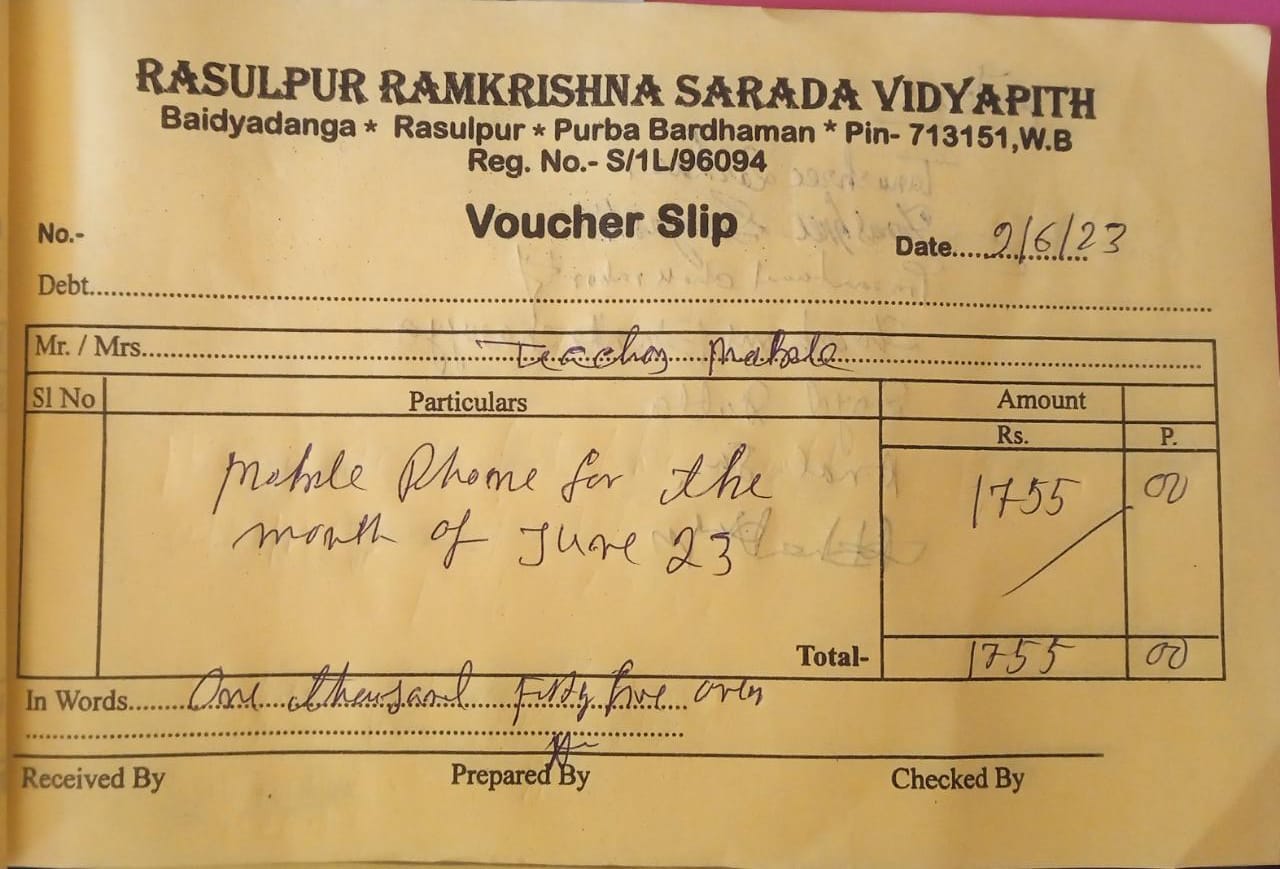 RASULPUR RAMKRISHNA SARADA VIDYAPITH
Baidyadanga * Rasulpur * Purba Bardhaman * Pin- 713151,W.B
Reg. No.- S/1L/96094
Voucher Slip
No.-
Date.....2/6/23
Debt.
Mr. / Mrs. Teacher Mobile
Sl No Particulars Amount
Rs. P.
Mobile Phone for the 1755 00
month of June 23
Total- 1755 00
In Words. One thousand Fifty five only
Received By Prepared By Checked By